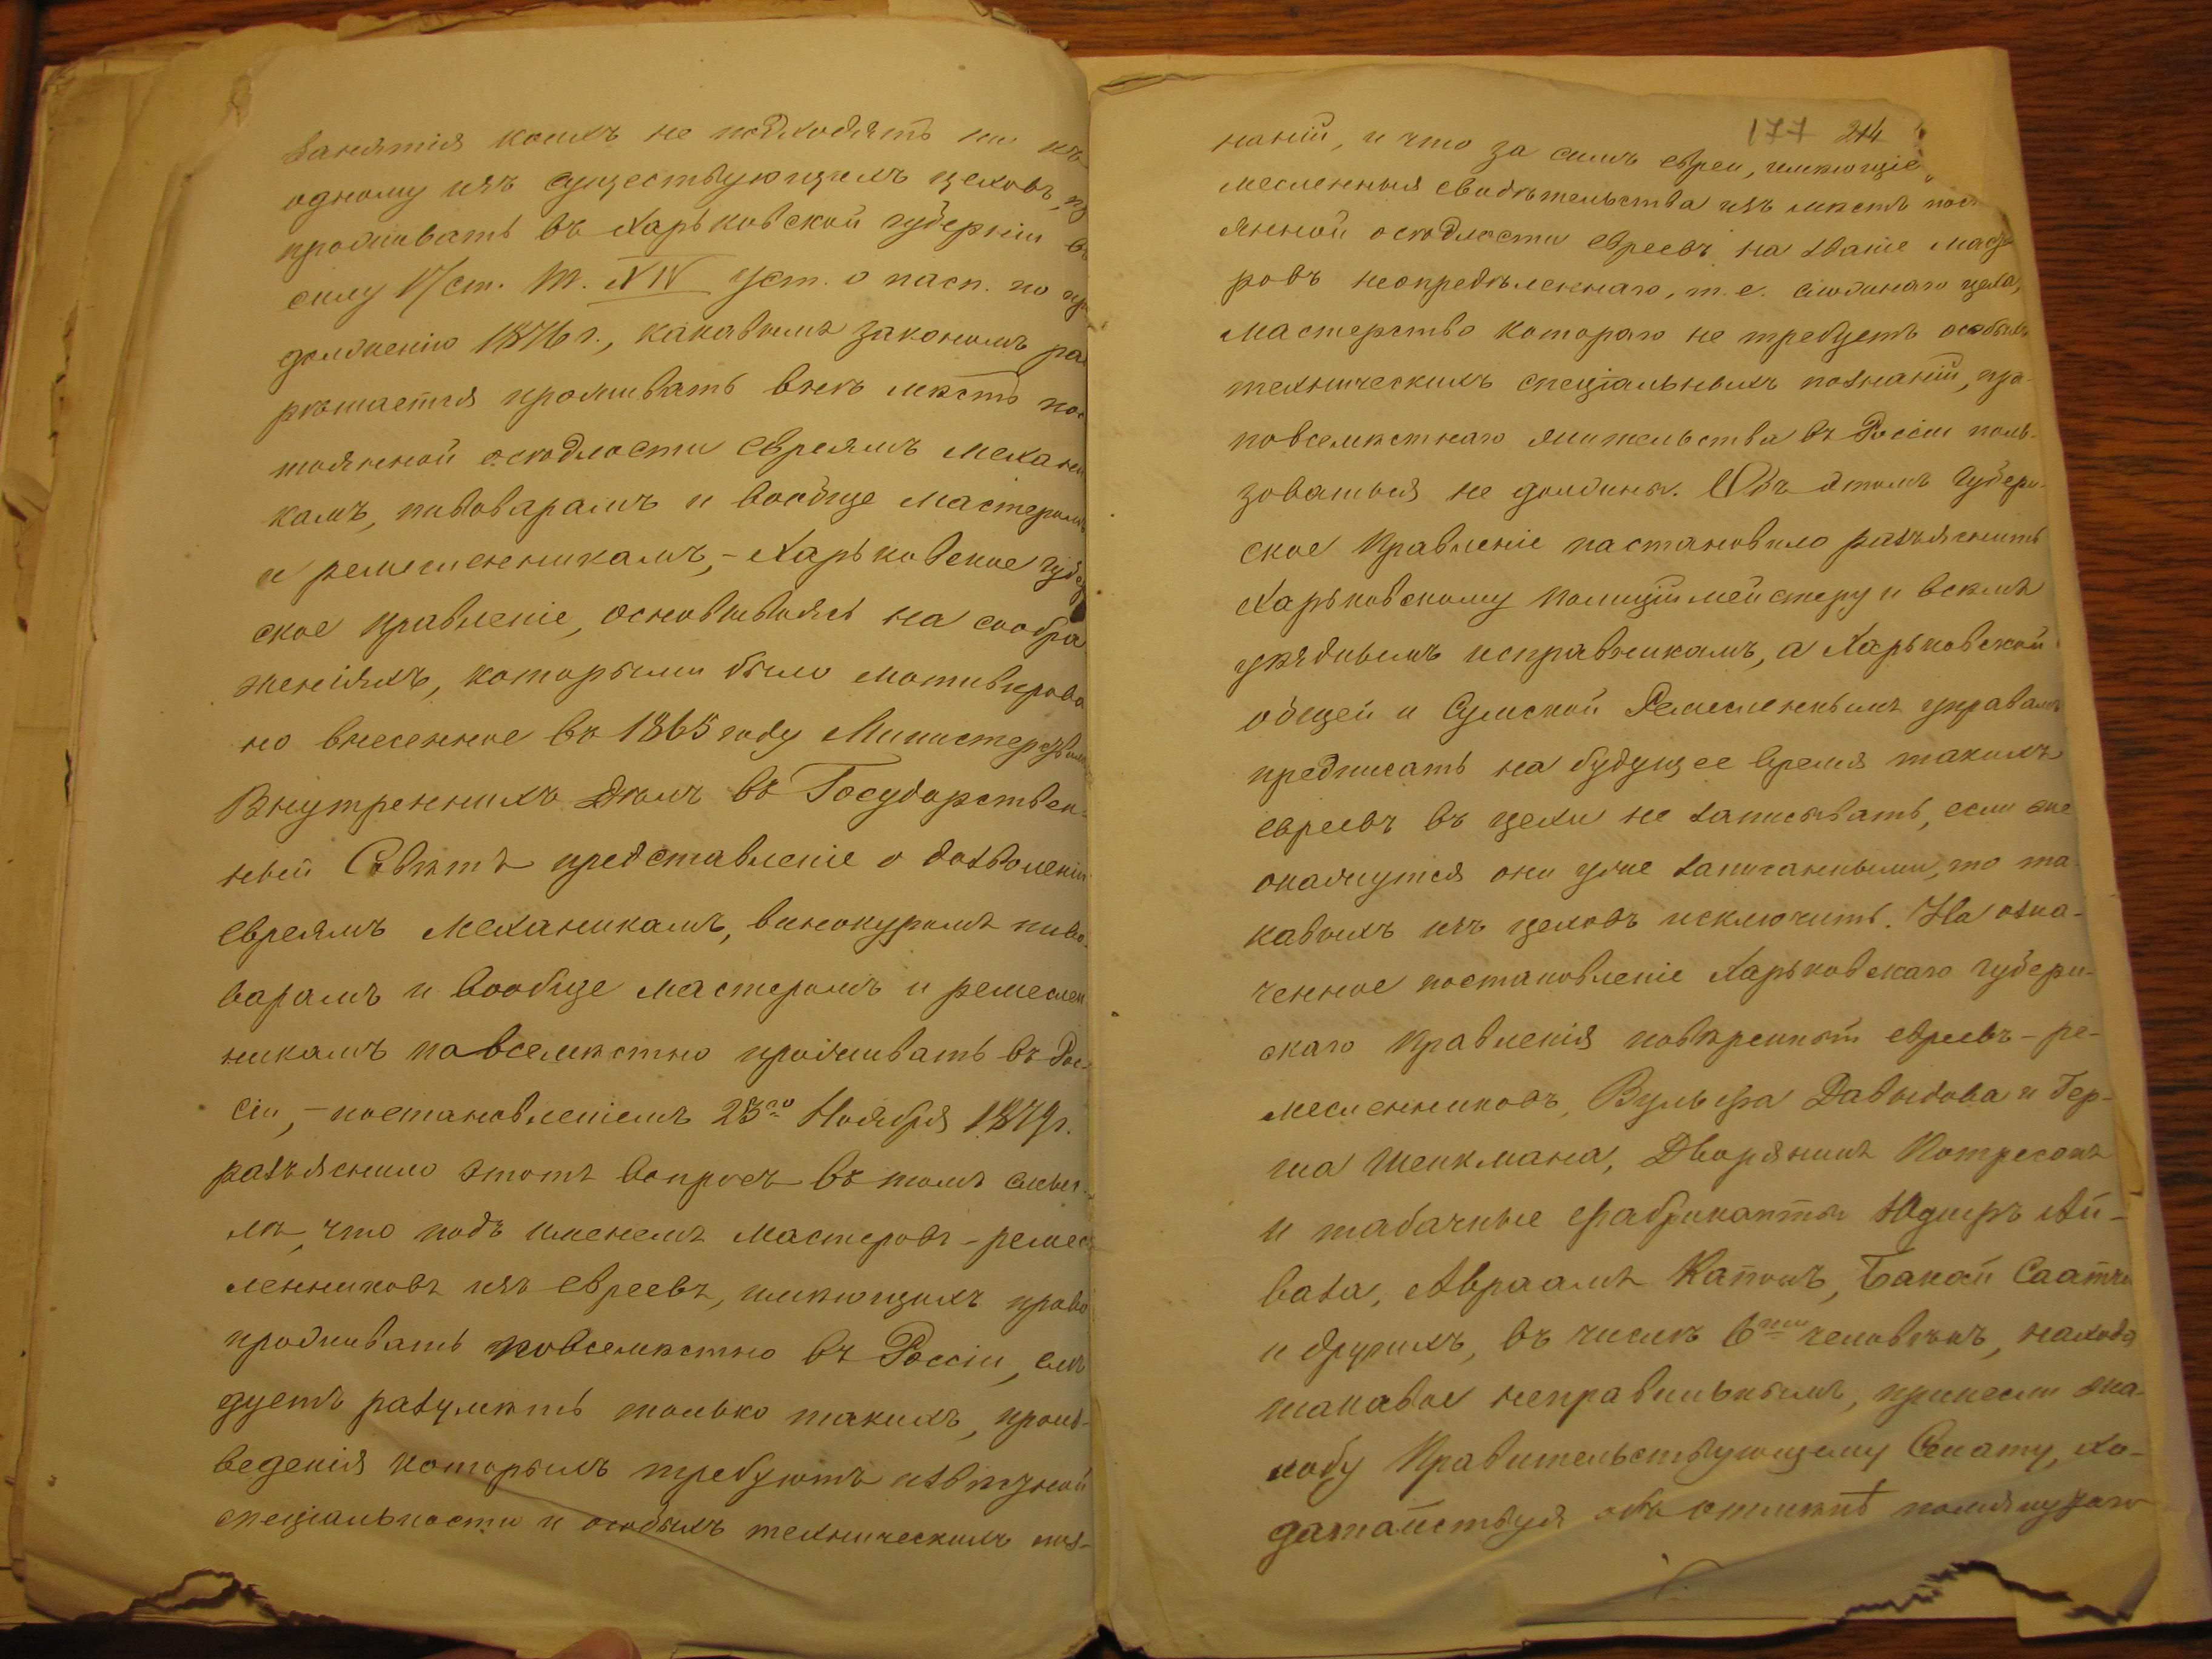 занятія коихъ не подходятъ ни къ
одному изъ существующихъ цеховъ,
проживать въ Харьковской губерніи въ
силу ст. т. XIV уст. о пасп. по про
долженію 1876 г., каковымъ закономъ раз
рѣшается проживать внѣ мѣстъ пос
тоянной осѣдлости евреямъ механи
камъ, пивоварамъ и вообще мастерамъ
и ремесленникамъ, – Харьковское Губерн
ское Правленіе, основываясь на сообра
женіяхъ, которыми было мотивирова
но внесенное въ 1865 году Министерствомъ
Внутреннихъ Дѣлъ въ Государствен-
ный Совѣтъ представленіе о дозволеніи
евреямъ механикамъ, винокурамъ пиво-
варамъ и вообще мастерамъ и ремеслен
никамъ повсемѣстно проживать въ Рос-
сіи, – постановленіемъ 23го Ноября 1879 г.
разъяснило этотъ вопросъ въ томъ смыс-
лѣ, что подъ именемъ мастеровъ-ремес
ленниковъ изъ евреевъ, имѣющихъ право
проживать повсемѣстно въ Россіи, слѣ
дуетъ разумѣть только такихъ, произ-
веденія которыхъ требуютъ извѣстной
спеціальности и особыхъ техническихъ поз-
177 214
наній, и что за симъ евреи, имѣющіе
месленныя свидѣтельства изъ мѣстъ пост
янной осѣдлости евреевъ на званіе масте
ровъ неопредѣленнаго, т. е. сложнаго цеха,
мастерство котораго не требуетъ особыхъ
техническихъ спеціальныхъ познаній, пра-
повсемѣстнаго жительства въ Россіи поль-
зоваться не должны. Объ этомъ Губерн-
ское Правленіе постановило разъяснить
Харьковскому Полиціймейстеру и всѣмъ
уѣзднымъ исправникамъ, а Харьковской
общей и Сумской Ремесленнымъ управамъ
предписать на будущее время такихъ
евреевъ въ цехи не записывать, если же
окажутся они уже записанными, то та-
ковыхъ изъ цеховъ исключить. На озна-
ченное постановленіе Харьковскаго Губерн-
скаго Правленія повѣренный евреевъ-ре-
месленниковъ, Вульфа Давыдова и Гер-
ша Шенкмана, Дворянинъ Потресовъ
и табачные фабриканты Юдифъ Ай-
ваза, Авраамъ Капонъ, Бакай Саатчи
и другихъ, въ числѣ 6ти человѣкъ, находя
таковое неправильнымъ, принесли жа-
лобу Правительствующему Сенату, хо-
датайствуя объ отмѣнѣ помянутаго